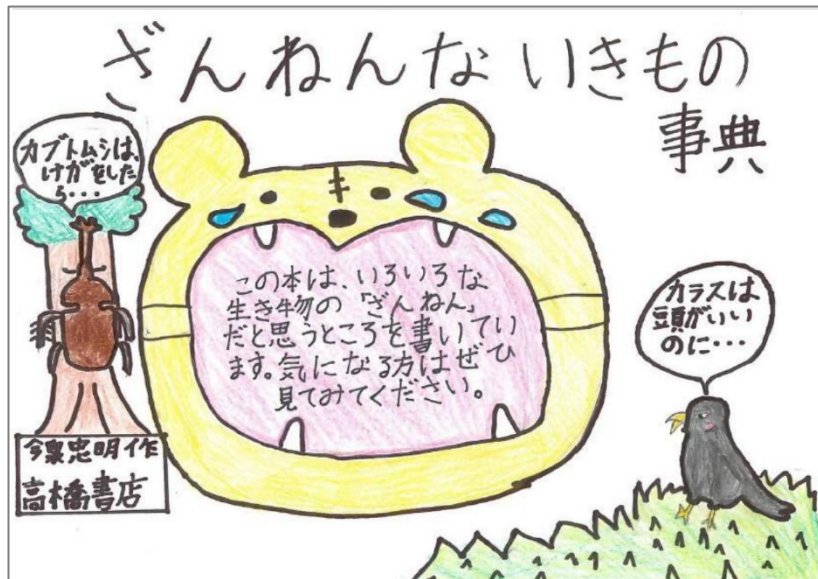 ざんねんないきもの
事典
カブトムシは、
けがをした
ら・・・
この本は、いろいろな
生き物の「ざんねん」
だと思うところを書いてい
ます。気になる方はぜひ
見てみてください。
カラスは
頭がいい
のに・・・
今泉忠明作
高橋書店